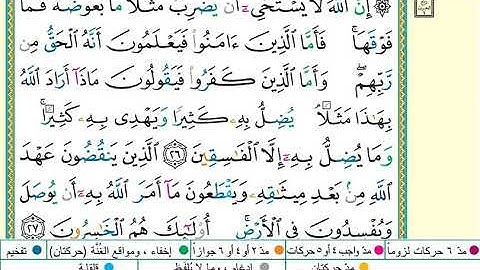 ۞ إِنَّ ٱللَّهَ لَا يَسْتَحْىِۦٓ أَن يَضْرِبَ مَثَلًا مَّا بَعُوضَةً فَمَا
فَوْقَهَا ۚ فَأَمَّا ٱلَّذِينَ ءَامَنُوا۟ فَيَعْلَمُونَ أَنَّهُ ٱلْحَقُّ مِن
رَّبِّهِمْ ۖ وَأَمَّا ٱلَّذِينَ كَفَرُوا۟ فَيَقُولُونَ مَاذَآ أَرَادَ ٱللَّهُ
بِهَـٰذَا مَثَلًا ۘ يُضِلُّ بِهِۦ كَثِيرًا وَيَهْدِى بِهِۦ كَثِيرًا ۚ
وَمَا يُضِلُّ بِهِۦٓ إِلَّا ٱلْفَـٰسِقِينَ ٢٦ ٱلَّذِينَ يَنقُضُونَ عَهْدَ
ٱللَّهِ مِنۢ بَعْدِ مِيثَـٰقِهِۦ وَيَقْطَعُونَ مَآ أَمَرَ ٱللَّهُ بِهِۦٓ أَن يُوصَلَ
وَيُفْسِدُونَ فِى ٱلْأَرْضِ ۚ أُو۟لَـٰٓئِكَ هُمُ ٱلْخَـٰسِرُونَ ٢٧
مدّ ٦ حركات لزوماً مدّ واجب ٤ أو ٥ حركات مدّ ٢ أو ٤ أو ٦ جوازاً إخفاء ، ومواقع الغُنَّة (حركتان) تفخيم
مدّ حركتان إدغام ، وما لا يُلفظ قلقلة